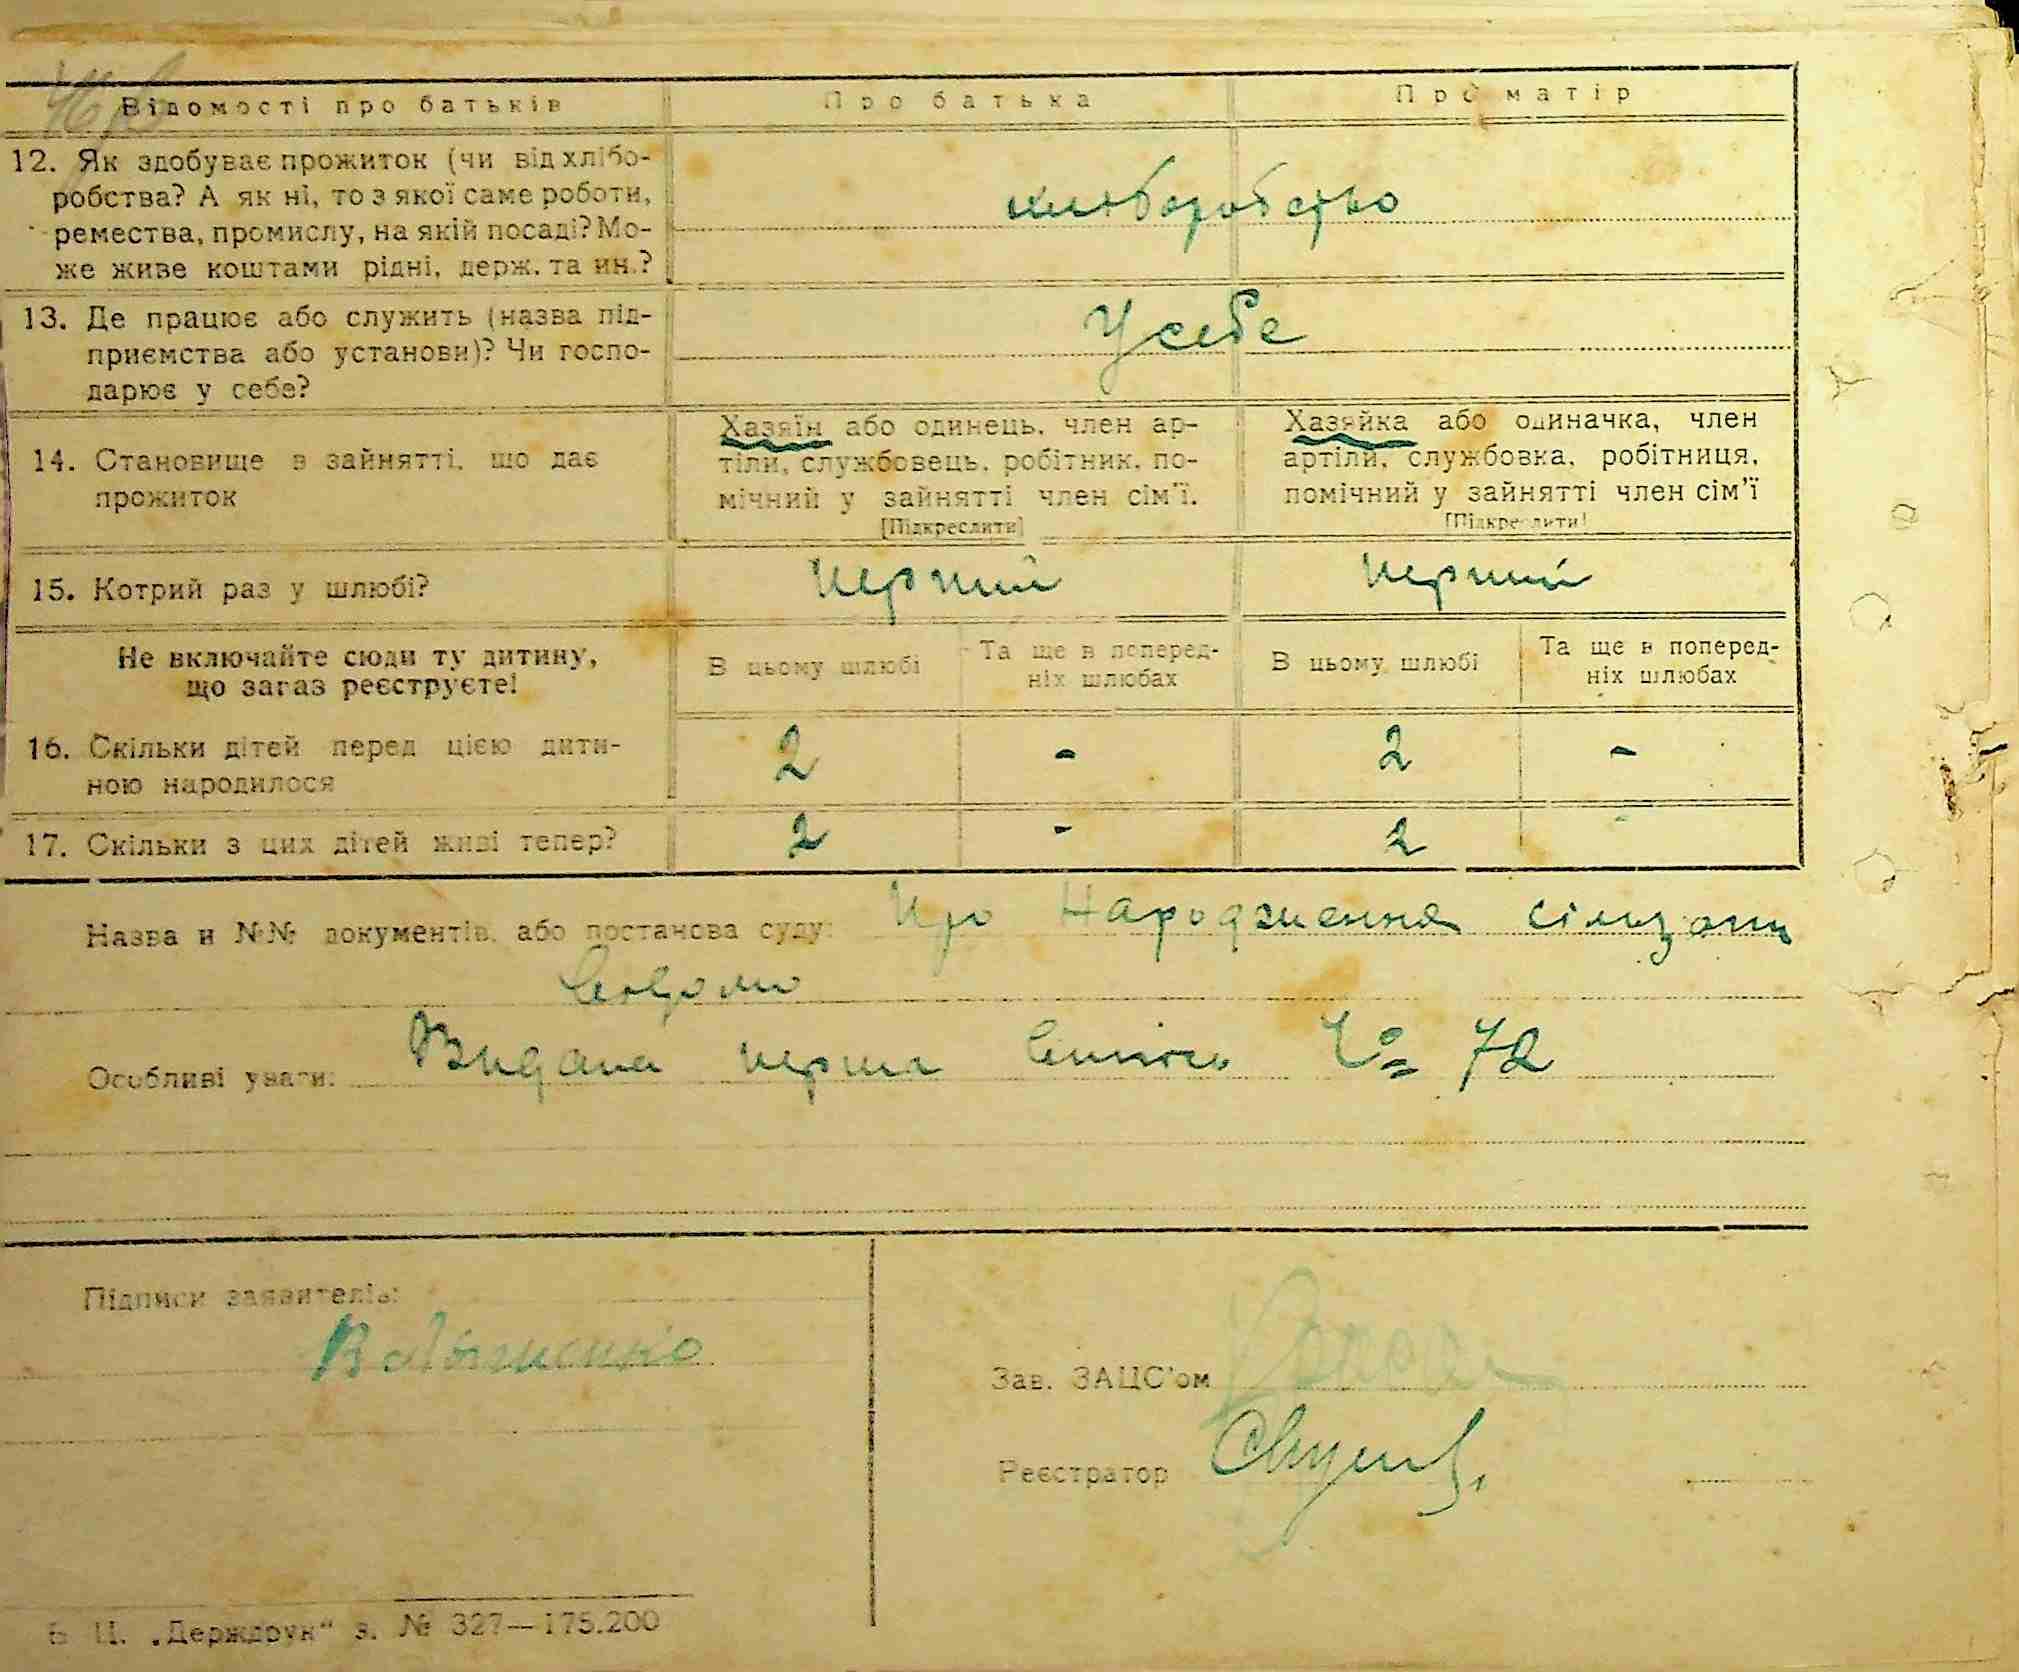 Відомості про батьків
Про батька
Про матір
12. Як здобуває прожиток (чи від хлібо-
робства? А як ні, то з якої саме роботи,
ремества, промислу, на якій посаді? Мо-
же живе коштами рідні, держ. та ин.?
хліборобство
13. Де працює або служить (назва під-
приємства або установи)? Чи госпо-
дарює у себе?
У себе
14. Становище в зайнятті, що дає
прожиток
Хазяїн або одинець, член ар-
тіли, службовець, робітник, по-
мічний у зайнятті член сім'ї.
[Підкреслити]
Хазяйка або одиначка, член
артіли, службовка, робітниця,
помічний у зайнятті член сім'ї
[Підкреслити]
15. Котрий раз у шлюбі?
перший
перший
Не включайте сюди ту дитину,
що зараз реєструєте!
В цьому шлюбі
Та ще в поперед-
ніх шлюбах
В цьому шлюбі
Та ще в поперед-
ніх шлюбах
16. Скільки дітей перед цією дити-
ною народилося
2 - 2 -
17. Скільки з цих дітей живі тепер?
2 - 2 -
Назва и №№ документів, або постанова суду: Про Народження
Особливі уваги: Видана перша № 72
Підписи заявителів:
Зав. ЗАЦС'ом
Реєстратор
Б. Ц. „Держдрук“ з. № 327—175.200